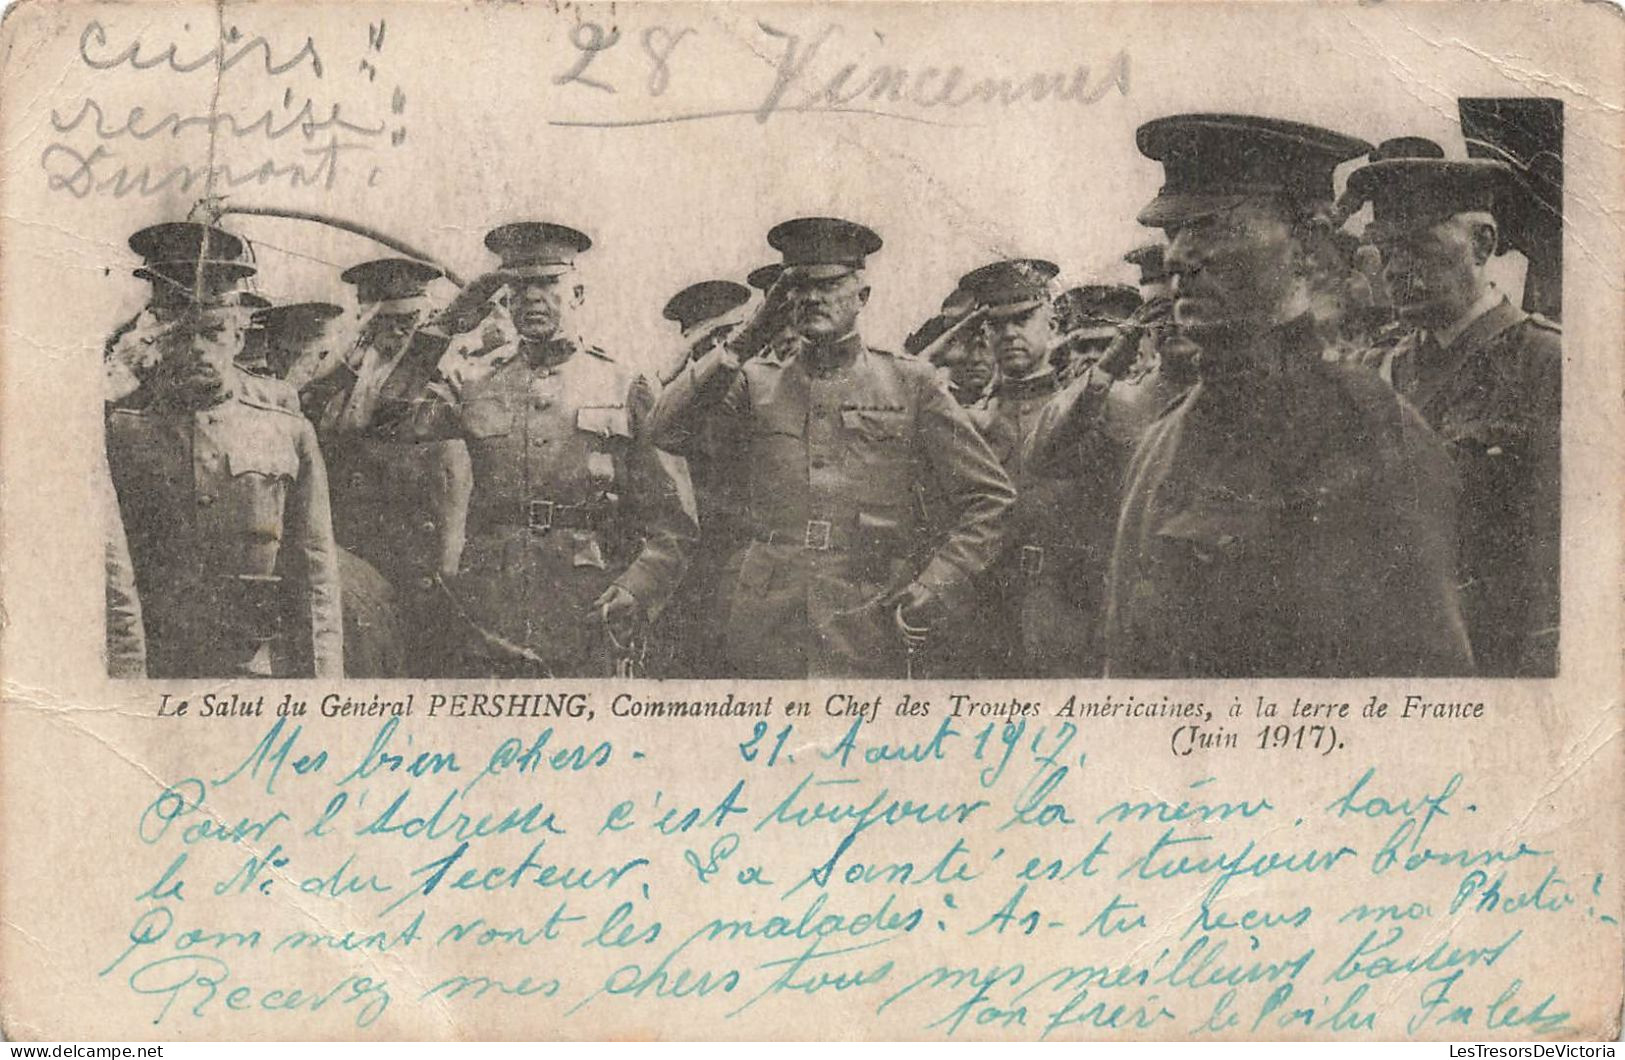 cuirs "
remise "
Dumont.
28 Vincennes
Le Salut du Général PERSHING, Commandant en Chef des Troupes Américaines, à la terre de France
(Juin 1917).
Mes bien chers - 21. Aout 1917.
Pour l'Adresse c'est toujour la même, sauf.
le No du Secteur. La Santé est toujour bonne
Comment vont les malades? As-tu recus ma Photo?-
Recevez mes chers tous mes meilleurs baisers
ton frère le Poilu Jules
LesTresorsDeVictoria